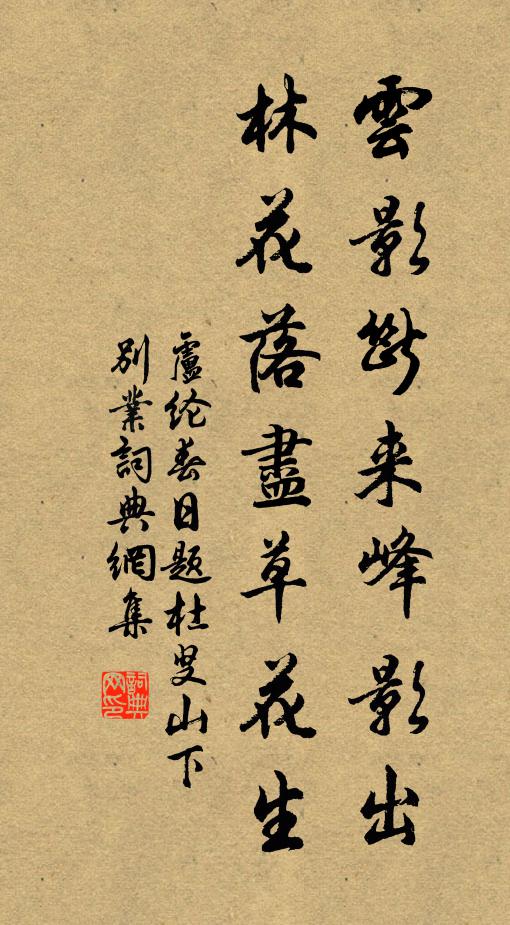 雲影斷来峰影出
林花落盡草花生
盧纶春日題杜叟山下
別業詞典網集
詞典網印